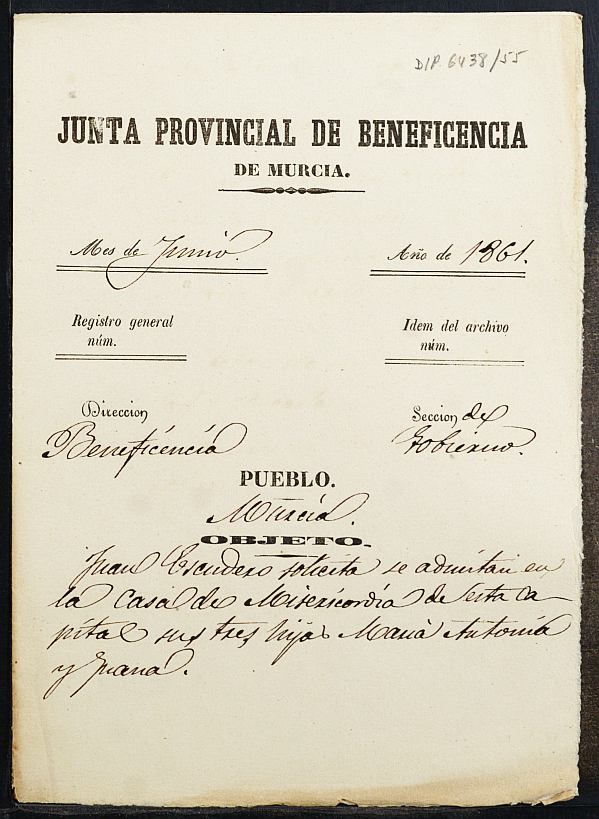 DIP. 6438/55
JUNTA PROVINCIAL DE BENEFICENCIA
DE MURCIA.
Mes de Junio. Año de 1861.
Registro general
núm.
Idem del archivo
núm.
Direccion
Beneficencia
Seccion de
Gobierno.
PUEBLO.
Murcia.
OBJETO.
Juan Escudero solicita se admitan en
la Casa de Misericordia de esta Ca-
pital sus tres hijas Maria Antonia
y Juana.